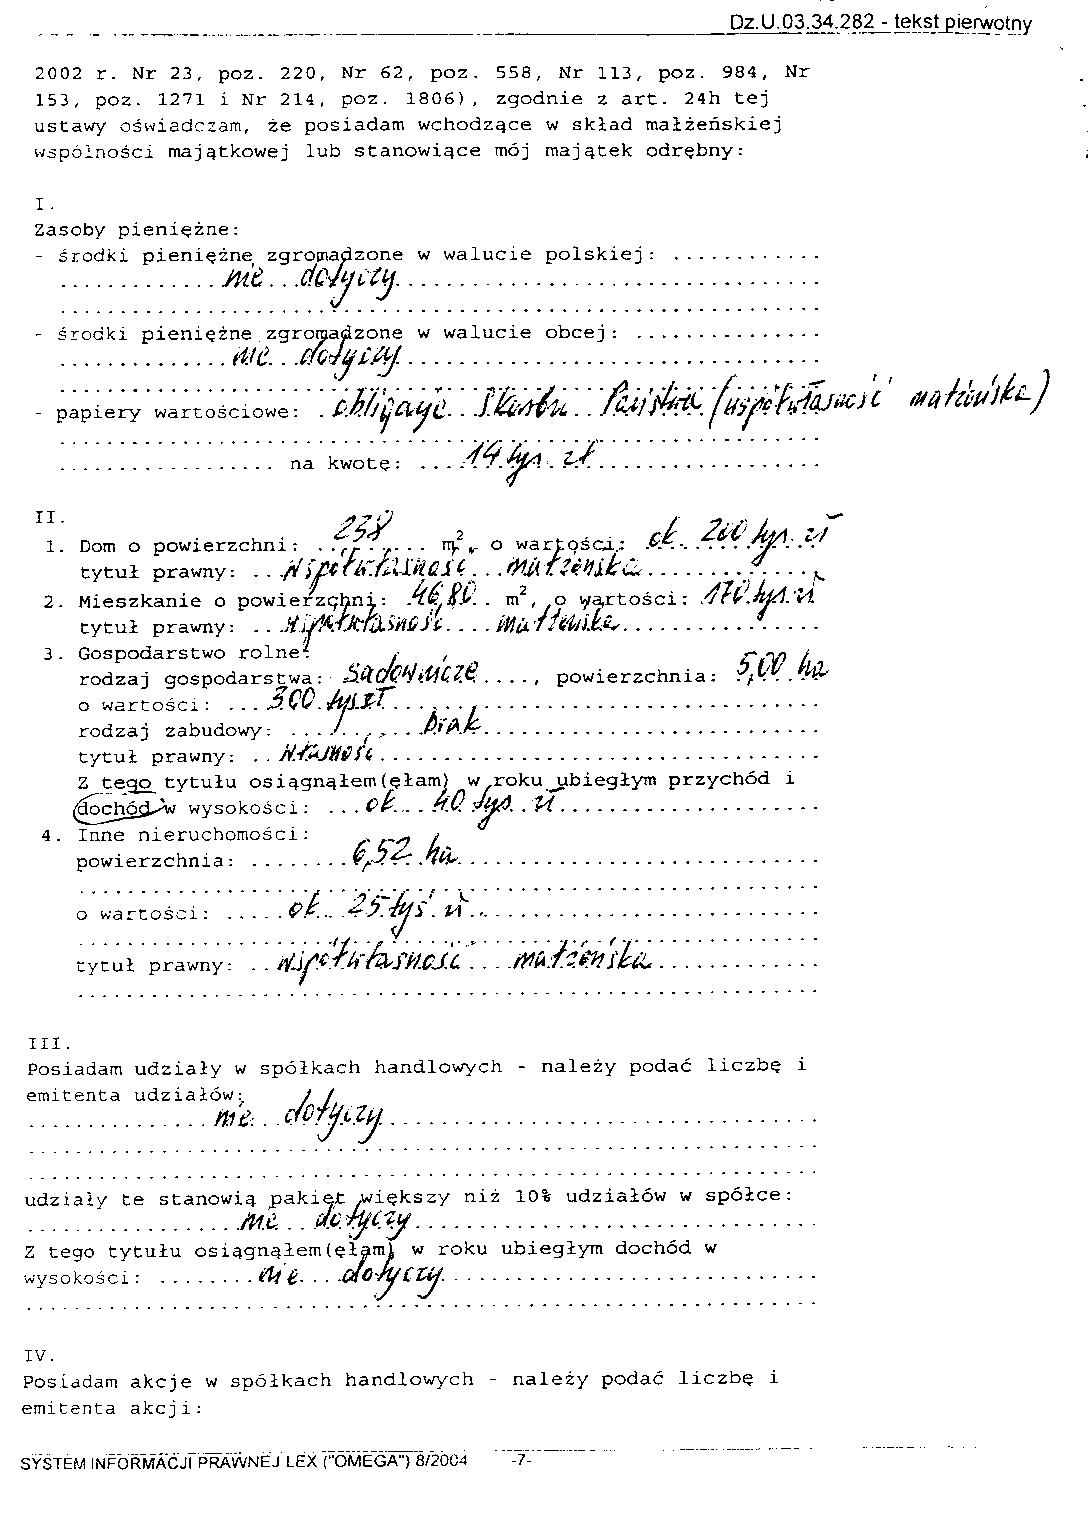 Dz.U.03.34.282 - tekst pierwotny
2002 r. Nr 23, poz. 220, Nr 62, poz. 558, Nr 113, poz. 984, Nr
153, poz. 1271 i Nr 214, poz. 1806), zgodnie z art. 24h tej
ustawy oświadczam, że posiadam wchodzące w skład małżeńskiej
wspólności majątkowej lub stanowiące mój majątek odrębny:
I.
Zasoby pieniężne:
- środki pieniężne zgromadzone w walucie polskiej: ............
nie dotyczy
- środki pieniężne zgromadzone w walucie obcej: ...............
nie dotyczy
- papiery wartościowe: obligacje Skarbu Państwa (współwłasność małżeńska)
na kwotę: 14 tys. zł
II.
1. Dom o powierzchni: 238 m², o wartości: ok. 200 tys. zł
tytuł prawny: współwłasność małżeńska
2. Mieszkanie o powierzchni: 46,80 m², o wartości: 170 tys. zł
tytuł prawny: współwłasność małżeńska
3. Gospodarstwo rolne:
rodzaj gospodarstwa: sadownicze, powierzchnia: 5,00 ha
o wartości: 300 tys. zł
rodzaj zabudowy: brak
tytuł prawny: własność
Z tego tytułu osiągnąłem(ęłam) w roku ubiegłym przychód i
dochód w wysokości: ok. 40 tys. zł
4. Inne nieruchomości:
powierzchnia: 6,52 ha
o wartości: ok. 25 tyś. zł
tytuł prawny: współwłasność małżeńska
III.
Posiadam udziały w spółkach handlowych - należy podać liczbę i
emitenta udziałów:
nie dotyczy
udziały te stanowią pakiet większy niż 10% udziałów w spółce:
nie dotyczy
Z tego tytułu osiągnąłem(ęłam) w roku ubiegłym dochód w
wysokości: nie dotyczy
IV.
Posiadam akcje w spółkach handlowych - należy podać liczbę i
emitenta akcji:
SYSTEM INFORMACJI PRAWNEJ LEX ("OMEGA") 8/2004 -7-